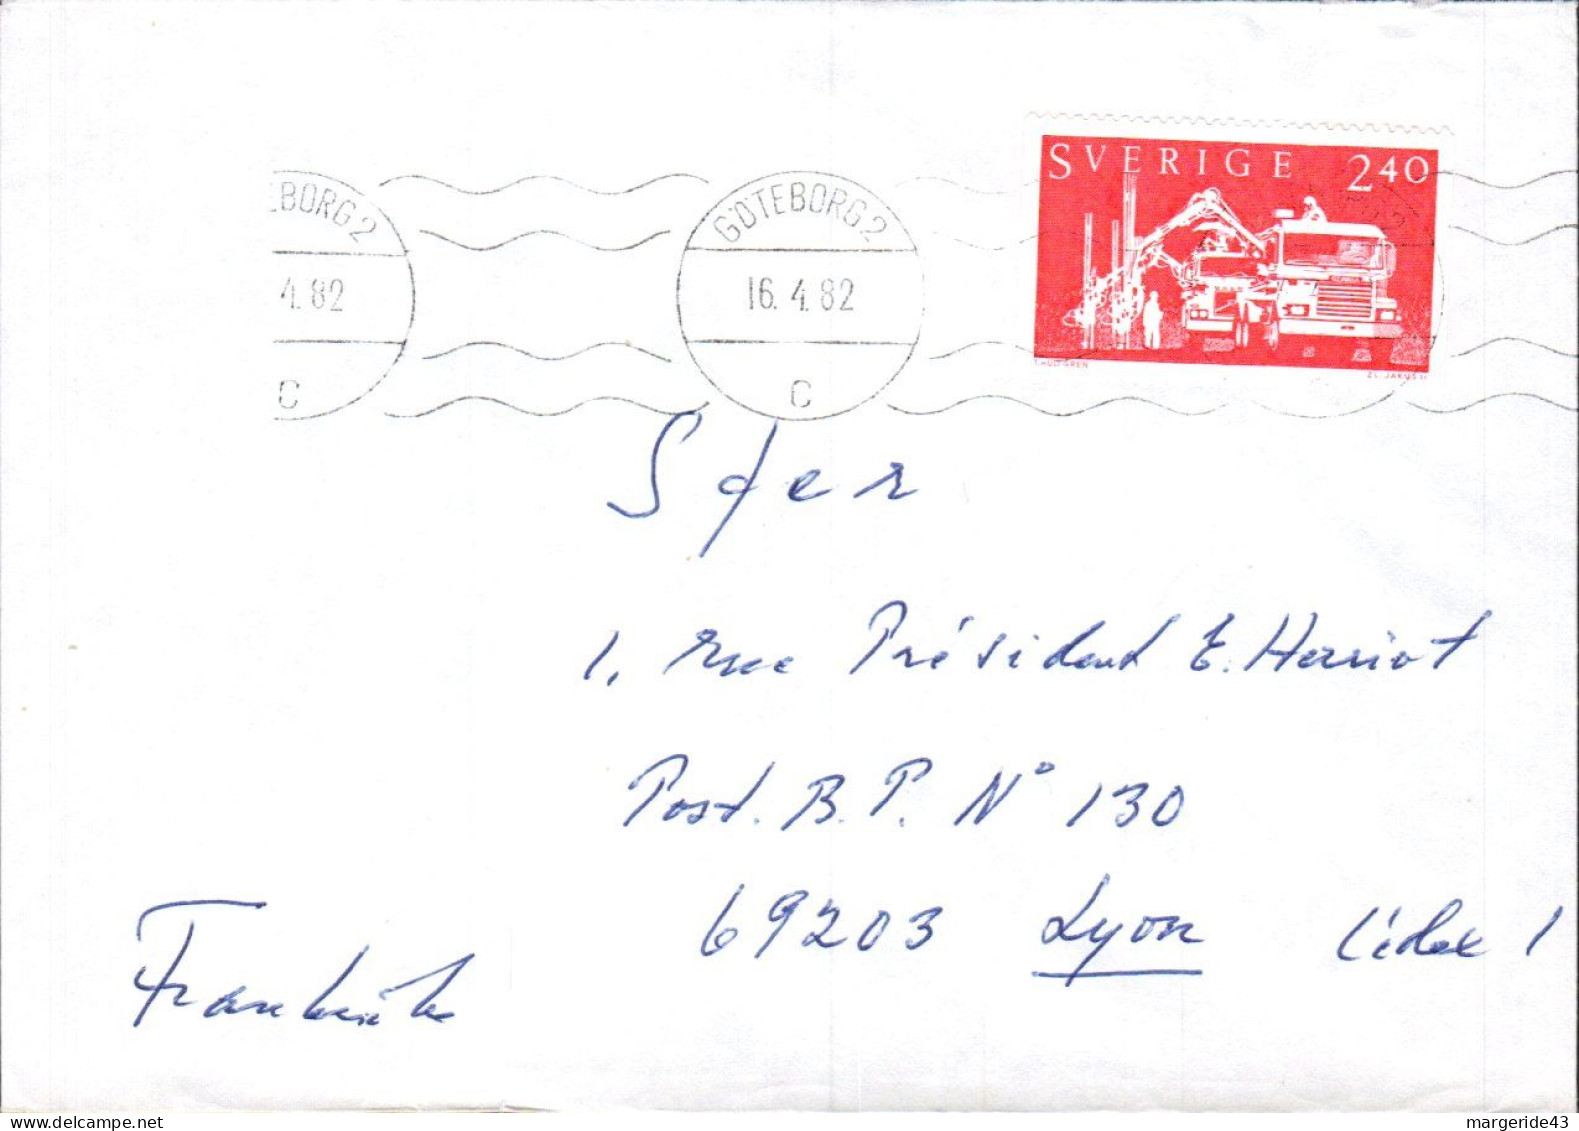 EBORG 2
4.82
C
GÖTEBORG 2
16.4.82
C
SVERIGE 240
Sfer
1, rue Président E. Herriot
Post. B.P. N° 130
69203 Lyon Cédex 1
Frankrike
www.delcampe.net
margeride43